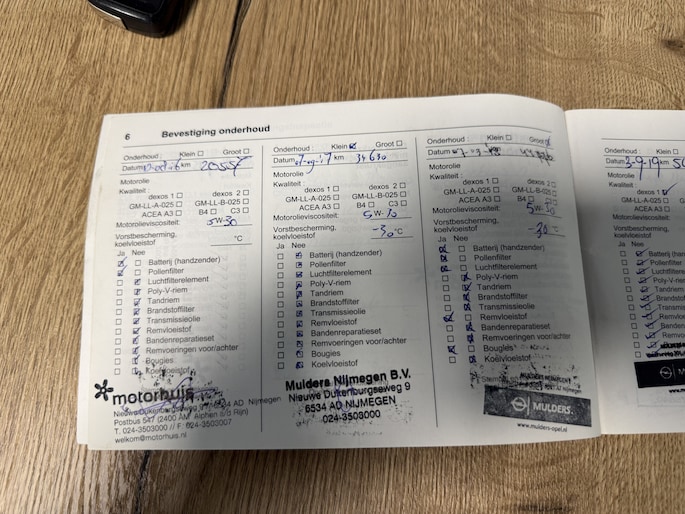 6 Bevestiging onderhoud
Onderhoud : Klein Groot
Datum km 20557
Motorolie
Kwaliteit :
dexos 1 dexos 2
GM-LL-A-025 GM-LL-B-025
ACEA A3 B4 C3
Motorolieviscositeit: 5W-30
Vorstbescherming,
koelvloeistof °C
Ja Nee
Batterij (handzender)
Pollenfilter
Luchtfilterelement
Poly-V-riem
Tandriem
Brandstoffilter
Transmissieolie
Remvloeistof
Bandenreparatieset
Remvoeringen voor/achter
Bougies
Koelvloeistof
motorhuis
Nieuwe Dukenburgseweg 9 6534 AD Nijmegen
Postbus 547 (2400 AM Alphen a/d Rijn)
T. 024-3503000 // F. 024-3503007
welkom@motorhuis.nl
Onderhoud : Klein Groot
Datum 07-09-17 km 34630
Motorolie
Kwaliteit :
dexos 1 dexos 2
GM-LL-A-025 GM-LL-B-025
ACEA A3 B4 C3
Motorolieviscositeit: 5W-30
Vorstbescherming,
koelvloeistof -30°C
Ja Nee
Batterij (handzender)
Pollenfilter
Luchtfilterelement
Poly-V-riem
Tandriem
Brandstoffilter
Transmissieolie
Remvloeistof
Bandenreparatieset
Remvoeringen voor/achter
Bougies
Koelvloeistof
Mulders Nijmegen B.V.
Nieuwe Dukenburgseweg 9
6534 AD NIJMEGEN
024-3503000
Onderhoud : Klein Groot
Datum km
Motorolie
Kwaliteit :
dexos 1 dexos 2
GM-LL-A-025 GM-LL-B-025
ACEA A3 B4 C3
Motorolieviscositeit: 5W-30
Vorstbescherming,
koelvloeistof -30 °C
Ja Nee
Batterij (handzender)
Pollenfilter
Luchtfilterelement
Poly-V-riem
Tandriem
Brandstoffilter
Transmissieolie
Remvloeistof
Bandenreparatieset
Remvoeringen voor/achter
Bougies
Koelvloeistof
MULDERS
www.mulders-opel.nl
Onderhoud :
Datum 3-9-19 km
Motorolie
Kwaliteit :
dexos 1
GM-LL-A-025
ACEA A3
Motorolieviscositeit:
Vorstbescherming,
koelvloeistof
Ja Nee